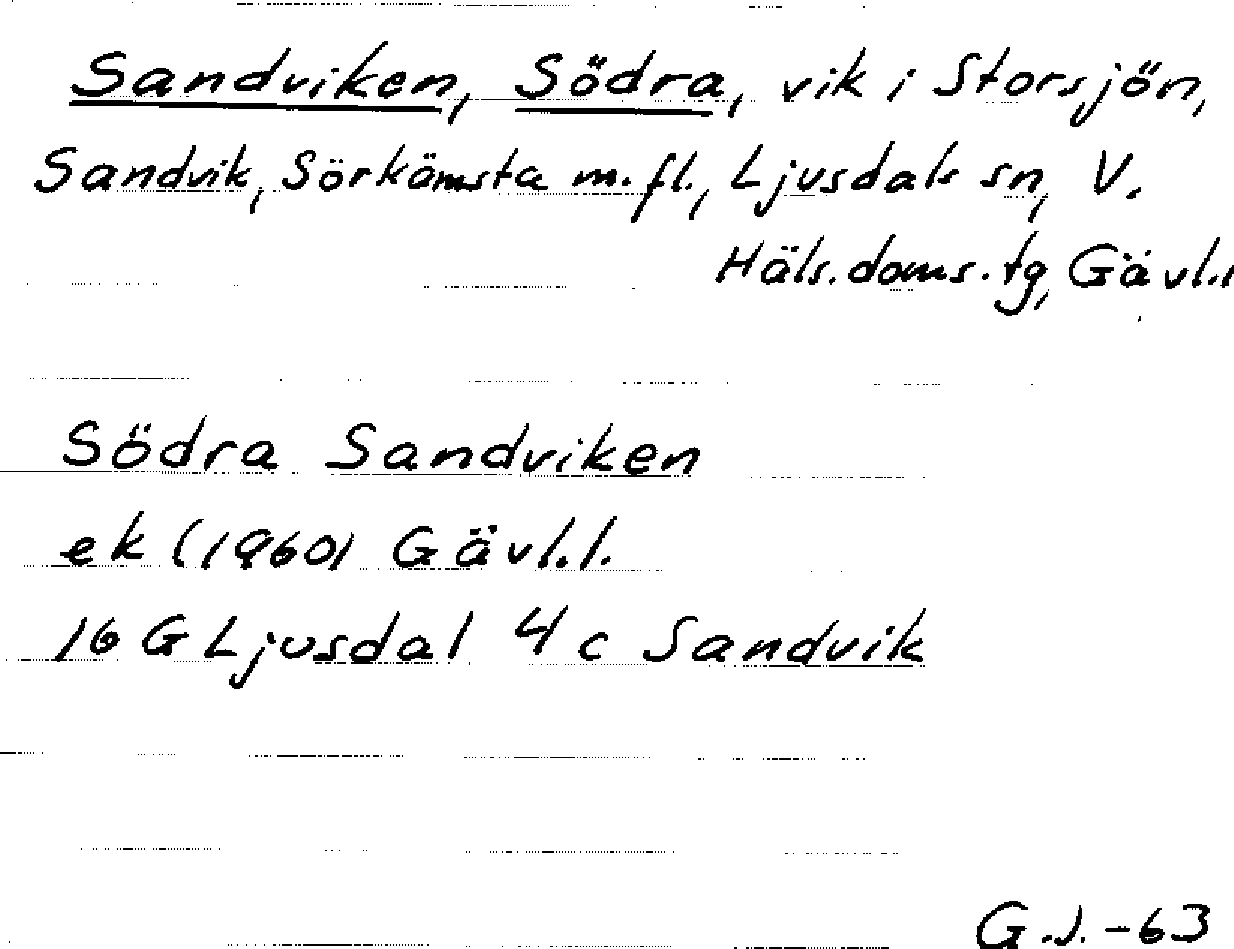 Sandviken, Södra, vik i Storsjön,
Sandvik, Sörkämsta m.fl., Ljusdals sn, V.
Häls.doms.tg, Gävl.l
Södra Sandviken
ek (1960) Gävl.l.
16 G Ljusdal 4 c Sandvik
G.J.-63